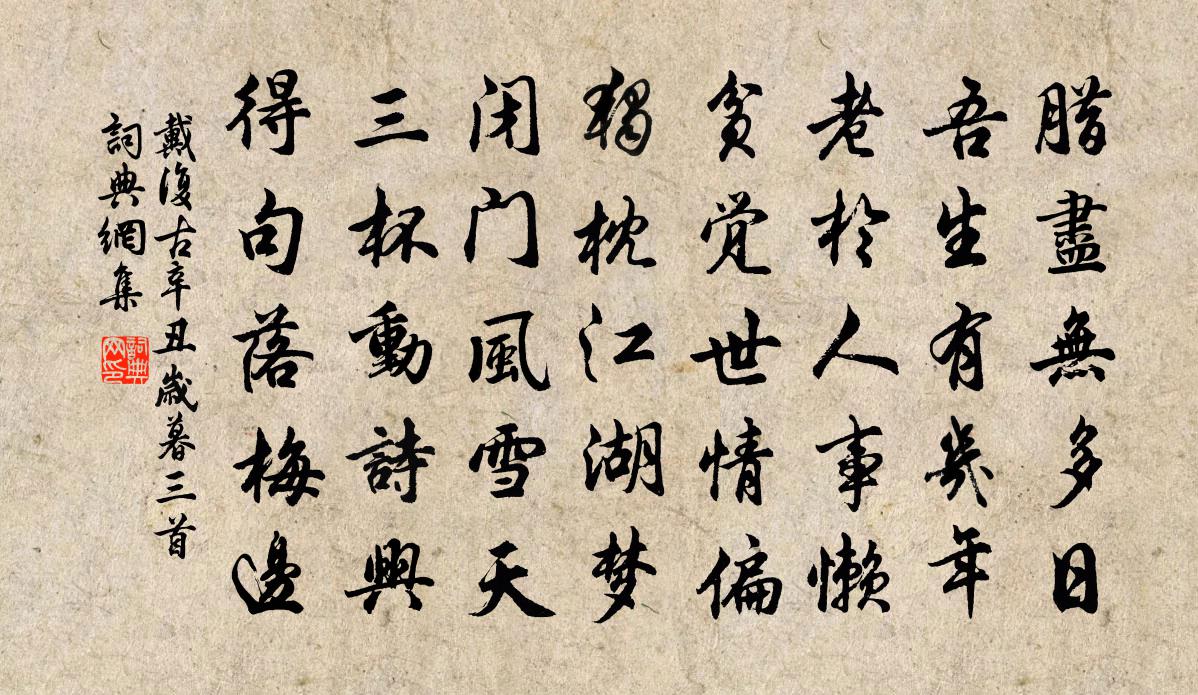 腊盡無多日
吾生有幾年
老於人事懶
貧觉世情偏
獨枕江湖梦
闭门風雪天
三杯動詩興
得句落梅邊
戴復古辛丑歲暮三首
詞典網集
詞典网印